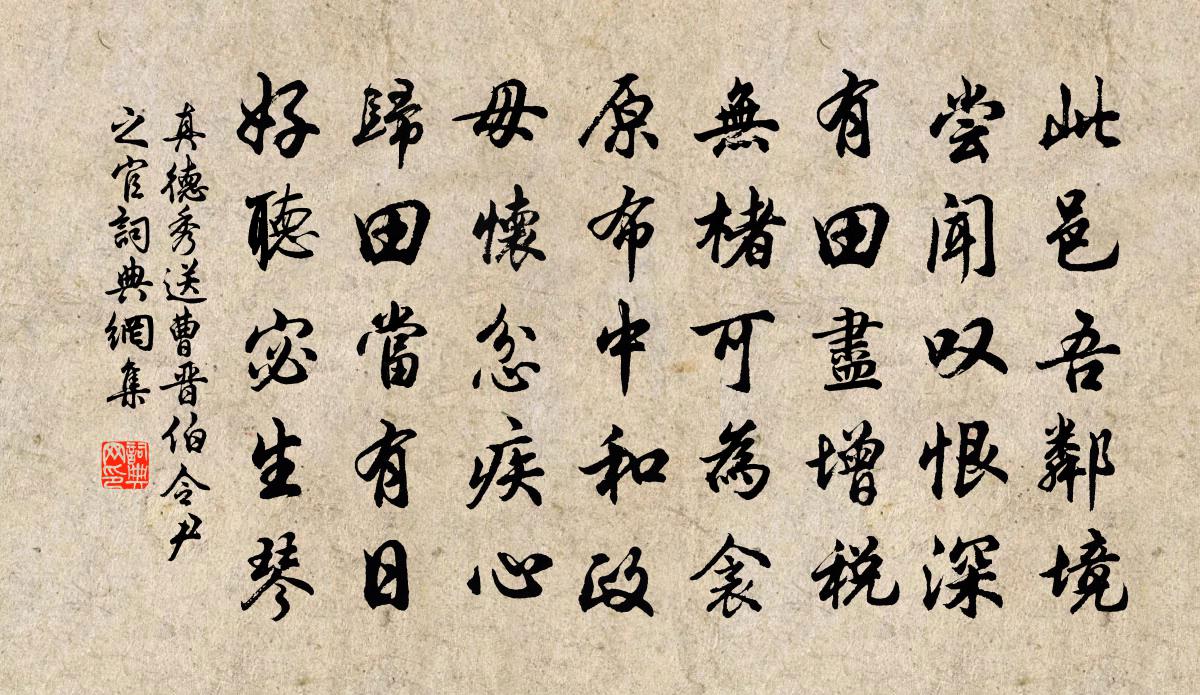 此邑吾鄰境
尝闻叹恨深
有田盡增税
無楮可為衾
原布中和政
毋懷忿疾心
歸田當有日
好聽宓生琴
真德秀送曹晋伯令尹
之官詞典網集
詞典
网印